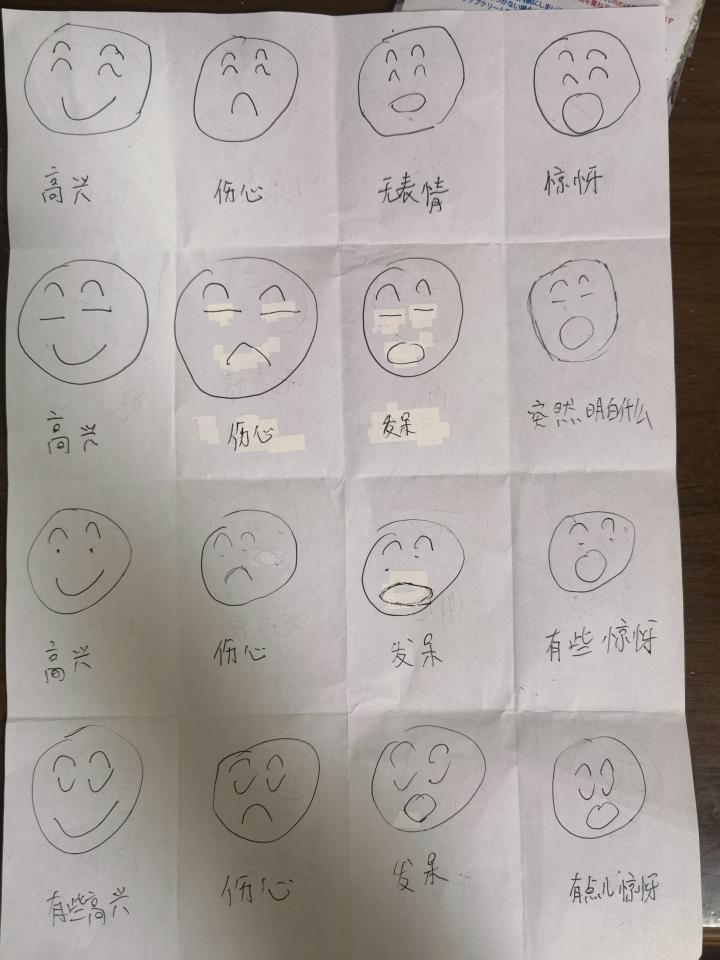 高兴
伤心
无表情
惊呀
高兴
伤心
发呆
突然明白什么
高兴
伤心
发呆
有些惊呀
有些高兴
伤心
发呆
有点儿惊呀